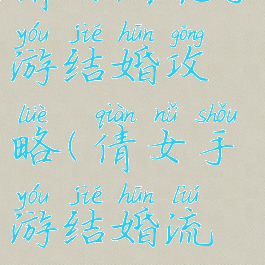 yóu jié hūn gōng
游结婚攻
lüè qiàn nǚ shǒu
略(倩女手
yóu jié hūn liú
游结婚流